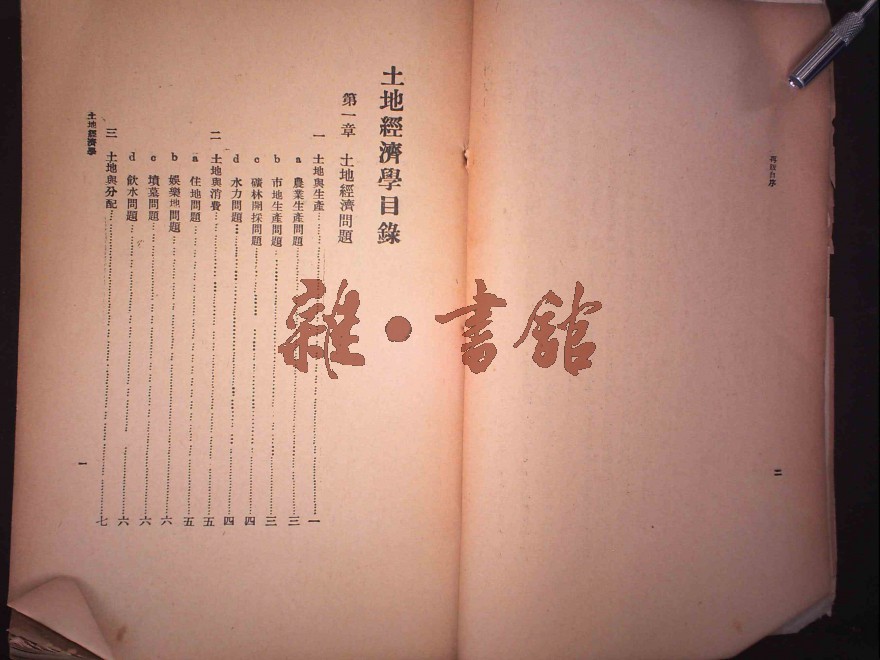 再版自序
二
土地經濟學目錄
第一章 土地經濟問題
一 土地與生產……一
a 農業生產問題……三
b 市地生產問題……三
c 礦林開採問題……四
d 水力問題……四
二 土地與消費……五
a 住地問題……五
b 娛樂地問題……六
c 墳墓問題……六
d 飲水問題……六
三 土地與分配……七
土地經濟學
一
雜·書館